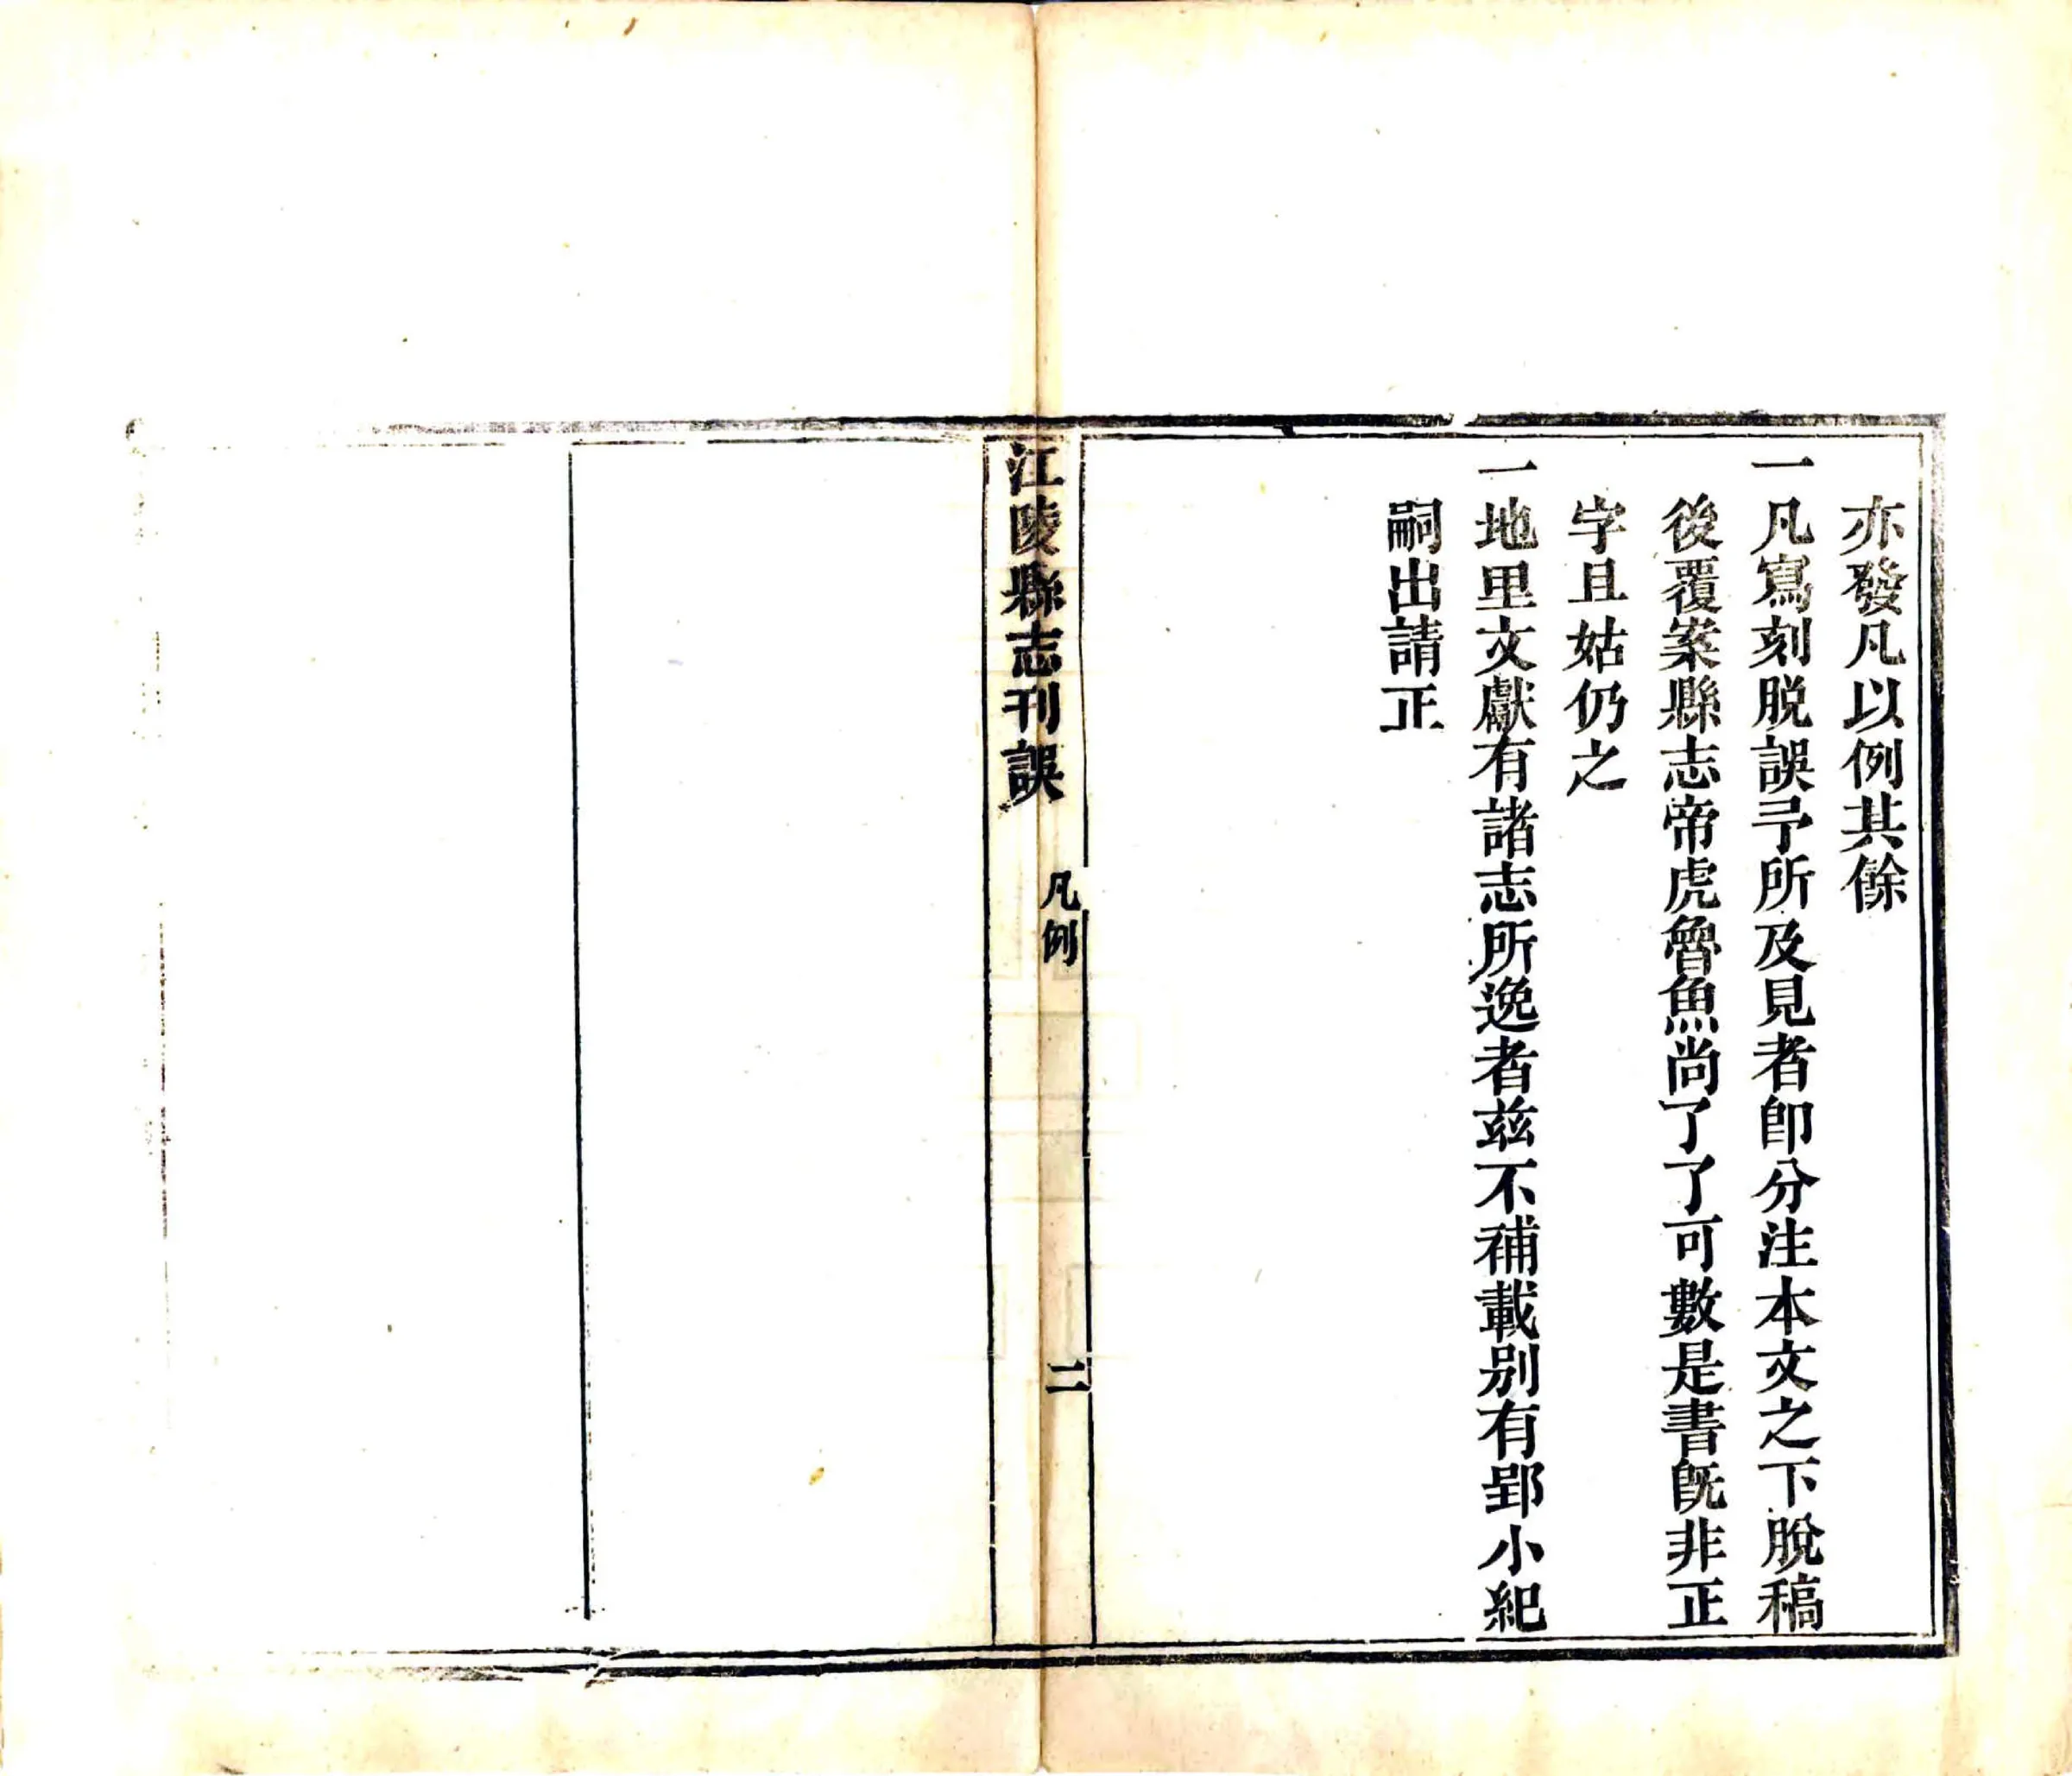 亦發凡以例其餘
一凡寫刻脱誤予所及見者卽分注本文之下脱稿
後覆案縣志帝虎魯魚尚了了可數是書旣非正
字且姑仍之
一地里文獻有諸志所逸者茲不補載别有郢小紀
嗣出請正
江陵縣志刊誤
凡例
二